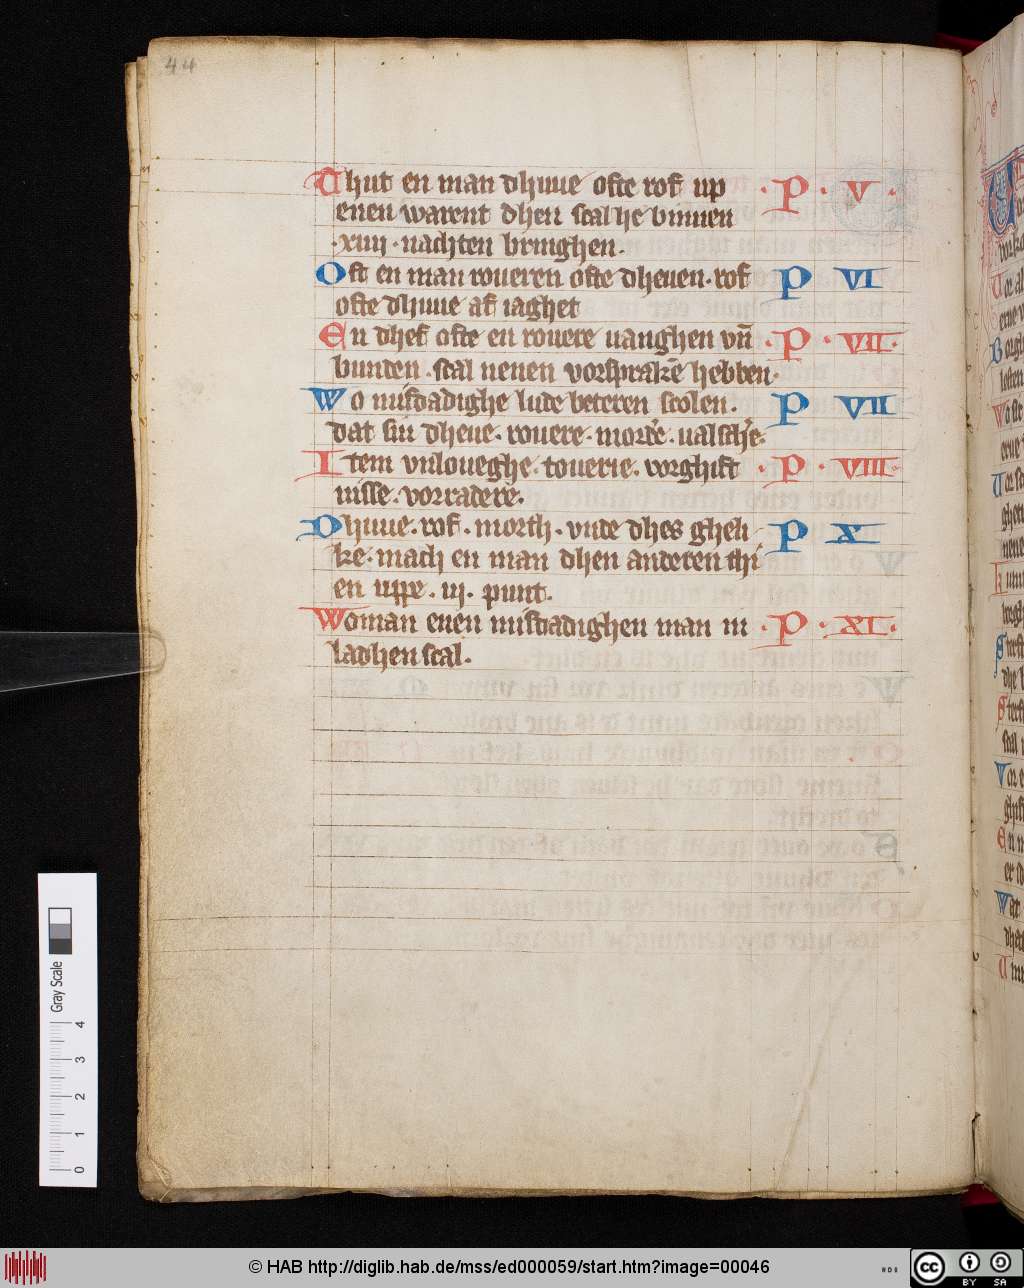 44
Thut en man dhuue ofte rof up · P · V ·
enen warent dhen scal he binnen
· xiiij · nachten bringhen.
Oft en man roueren ofte dheuen · rof P VI
ofte dhuue af iaghet
En dhef ofte en rouere uanghen vn̄ · P · VII ·
bunden · scal nenen vorsprakē hebben ·
Wo misdadighe lude beteren scolen. P VII
dat sin dheue. rouere. mord'e. ualsch'e.
Item vnloueghe. touerie. vorghift · P · VIII ·
nisse. vorradere.
Dhuue. rof. morth. vnde dhes gheli P X
ke. mach en man dhen anderen thi
en uppe. iij. punt.
Woman enen misdadighen man in · P · XI ·
ladhen scal.
Gray Scale
0 1 2 3 4
© HAB http://diglib.hab.de/mss/ed000059/start.htm?image=00046
cc BY SA